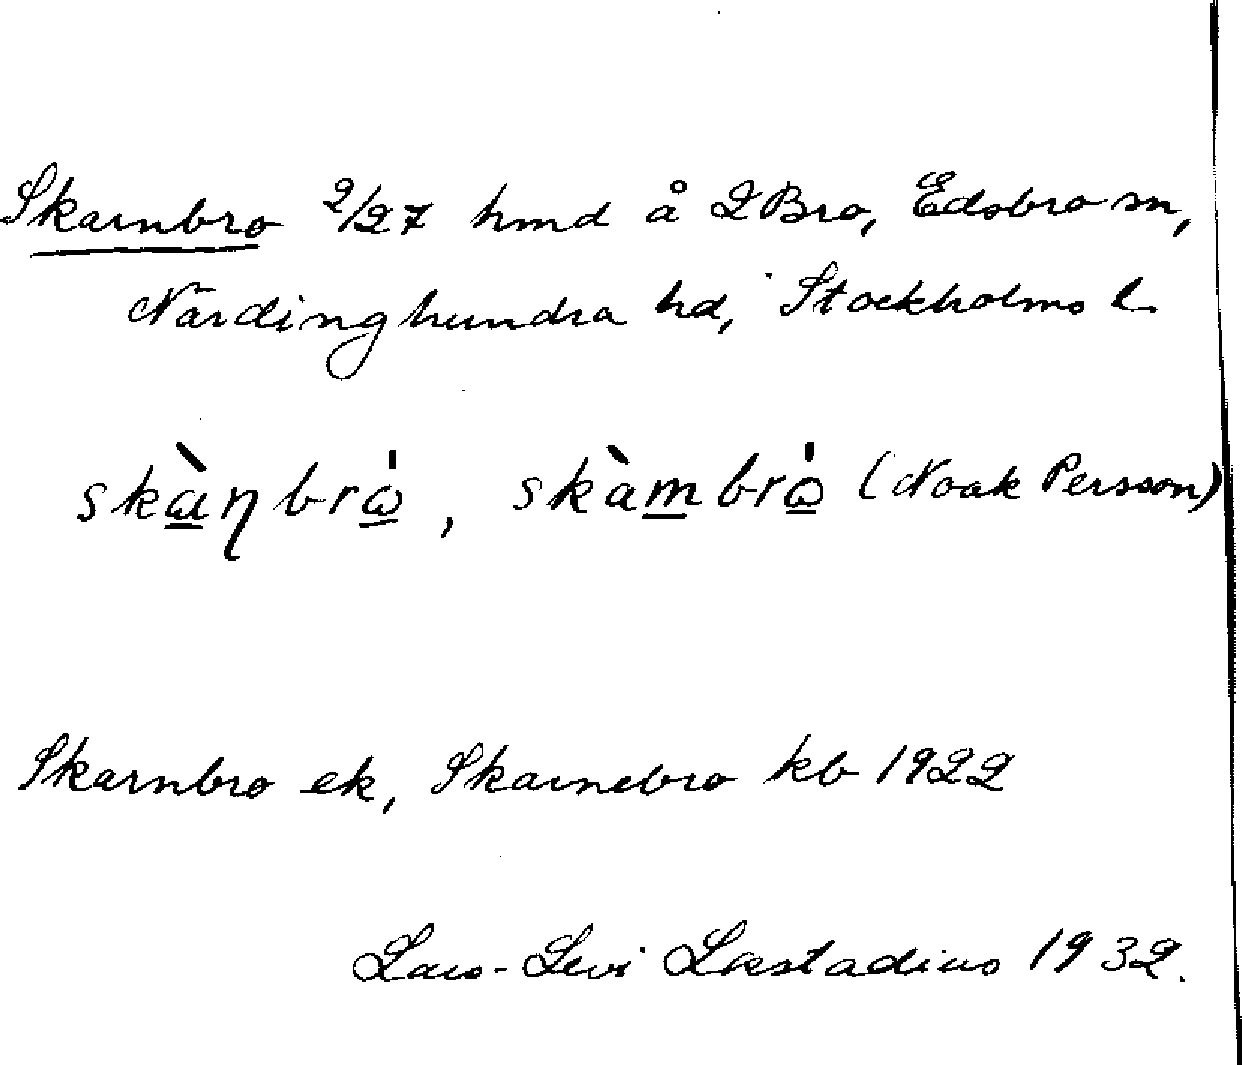 Skarnbro 2/27 hmd å 2 Bro, Edsbro sn,
Närdinghundra hd, Stockholms l.
skàṇbrω̇, skàmbrω̇ (Noak Persson)
Skarnbro ek, Skarnebro kb 1922
Lars-Levi Læstadius 1932.